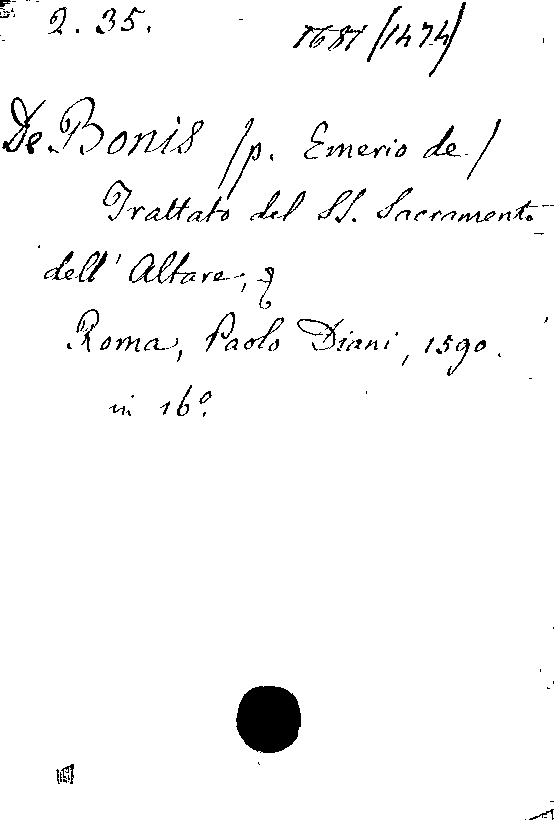 2. 35.
1681 (1474)
De Bonis /p. Emerio de/
Trattato del SS. Sacramento
dell' Altare,
Roma, Paolo Diani, 1590.
in 16º.